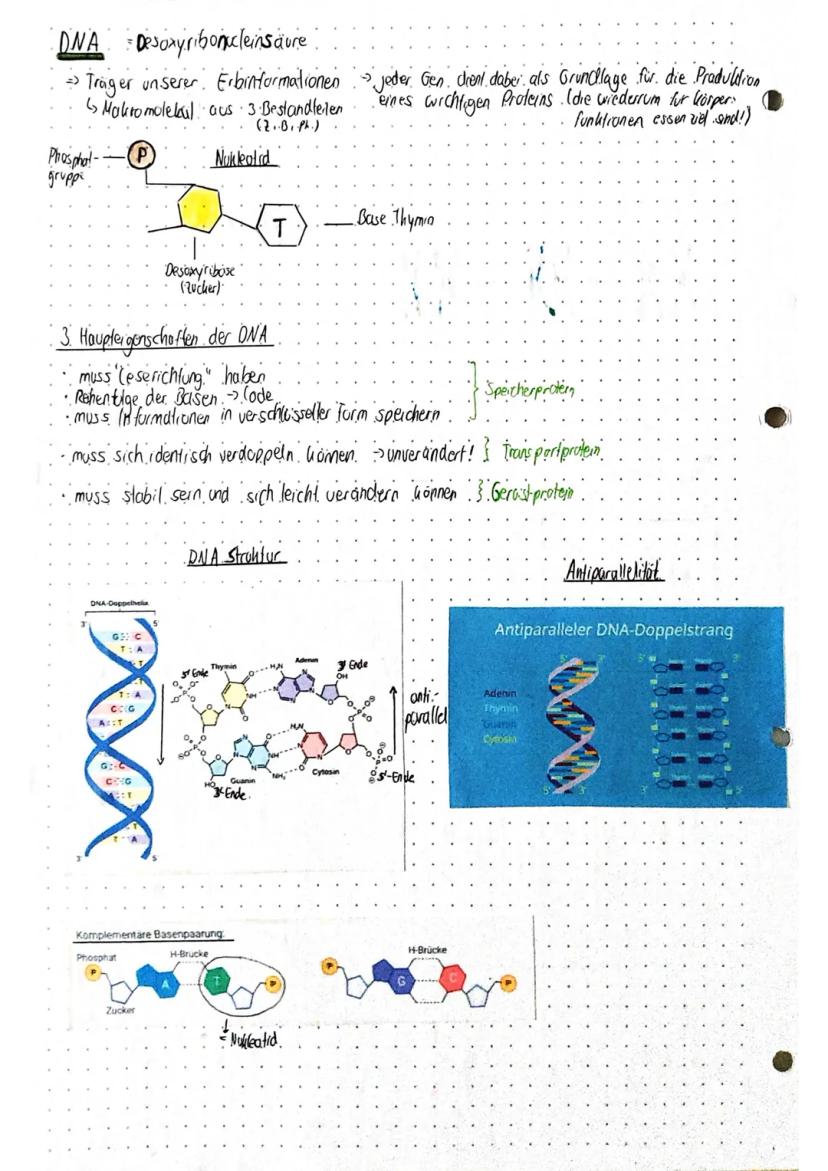 DNA = Desoxyribonucleinsäure
=> Träger unserer Erbinformationen -> jeder Gen dient dabei als Grundlage für die Produktion
↳ Makromolekül aus 3 Bestandteilen eines wichtigen Proteins (die wiederrum für Körper-
(Z, B, Ph.) funktionen essenziel sind!)
Phosphat-
gruppe
P
Nukleotid
T
Base Thymin
Desoxyribose
(Zucker)
3 Haupteigenschaften der DNA
• muss "Leserichtung" haben
• Reihenfolge der Basen -> Code
• muss Informationen in verschlüsselter Form speichern
Speicherprotein
• muss sich identisch verdoppeln können -> unverändert! } Transportprotein
• muss stabil sein und sich leicht verändern können } Gerüstprotein
DNA Struktur
Antiparallelität
DNA-Doppelhelix
3' 5'
G C
T A
T
T A
C G
A T
G C
C G
A T
T
T A
3' 5'
5' Ende
Thymin
Adenin
3' Ende
Guanin
Cytosin
3' Ende
5'-Ende
anti-
parallel
Antiparalleler DNA-Doppelstrang
5' 3'
5' 3'
Adenin
Thymin
Guanin
Cytosin
5' 3'
3' 5'
Komplementäre Basenpaarung:
Phosphat
H-Brücke
H-Brücke
P A T P
P G C P
Zucker
= Nukleotid